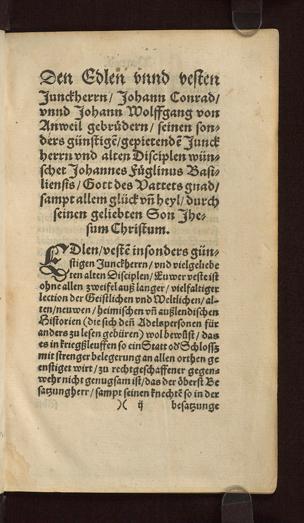 Den Edlen vnnd vesten
Junckherrn/ Johann Conrad/
vnnd Johann Wolffgang von
Anweil gebrüdern/ seinen son-
ders günstigẽ/ gepietendẽ Junck
herrn vnd alten Disciplen wün-
schet Johannes Füglinus Basi-
liensis/ Gott des Vatters gnad/
sampt allem glück vñ heyl/ durch
seinen geliebten Son Jhe-
sum Christum.
EDlen/ vestẽ insonders gün-
stigen Junckherrn/ vnd vielgeliebe
ten alten Disciplen/ Euwer veste ist
ohne allen zweifel auß langer/ vielfaltiger
lection der Geistlichen vnd Weltlichen/ al-
ten/ neuwen/ heimischen vñ außlendischen
Historien (die sich deñ Adelspersonen für
anders zu lesen gebüren) wol bewüst/ das
es in kriegßleuffen so ein Statt od Schlossz
mit strenger belegerung an allen orthen ge
enstiget wirt/ zu rechtgeschaffener gegen-
wehr nicht genugsam ist/ das der öberst Be
satzungherr/ sampt seinen knechtẽ so in der
)( ij besatzunge